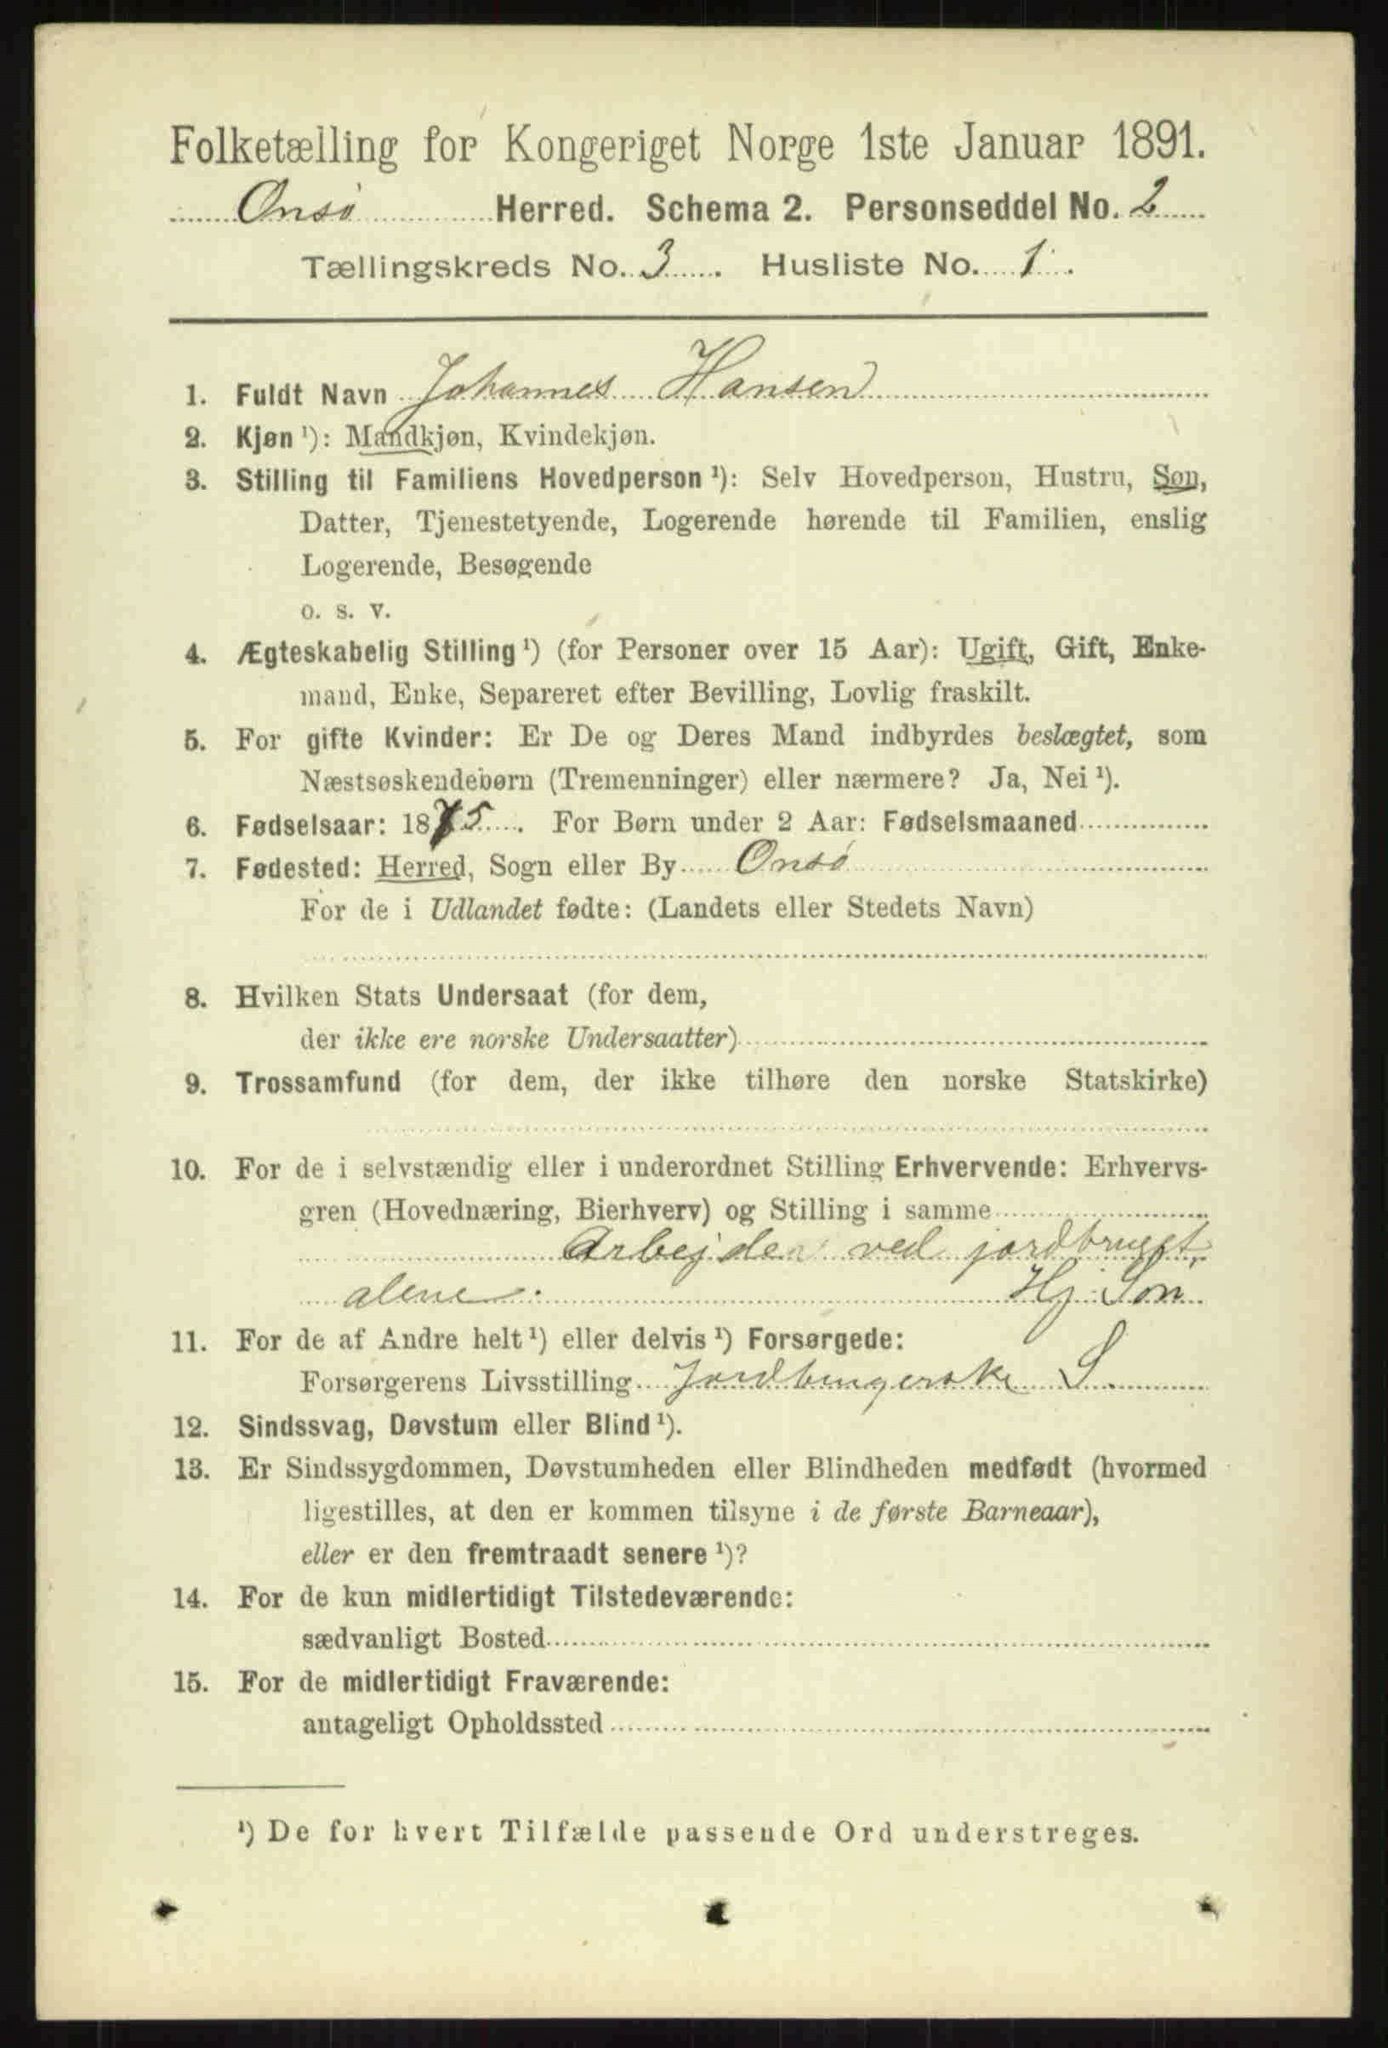 Folketælling for Kongeriget Norge 1ste Januar 1891.
Onsø Herred. Schema 2. Personseddel No. 2
Tællingskreds No. 3. Husliste No. 1.
1. Fuldt Navn Johannes Hansen
2. Kjøn ¹): Mandkjøn, Kvindekjøn.
3. Stilling til Familiens Hovedperson ¹): Selv Hovedperson, Hustru, Søn,
Datter, Tjenestetyende, Logerende hørende til Familien, enslig
Logerende, Besøgende
o. s. v.
4. Ægteskabelig Stilling ¹) (for Personer over 15 Aar): Ugift, Gift, Enke-
mand, Enke, Separeret efter Bevilling, Lovlig fraskilt.
5. For gifte Kvinder: Er De og Deres Mand indbyrdes beslægtet, som
Næstsøskendebørn (Tremenninger) eller nærmere? Ja, Nei ¹).
6. Fødselsaar: 1875. For Børn under 2 Aar: Fødselsmaaned
7. Fødested: Herred, Sogn eller By Onsø
For de i Udlandet fødte: (Landets eller Stedets Navn)
8. Hvilken Stats Undersaat (for dem,
der ikke ere norske Undersaatter)
9. Trossamfund (for dem, der ikke tilhøre den norske Statskirke)
10. For de i selvstændig eller i underordnet Stilling Erhvervende: Erhvervs-
gren (Hovednæring, Bierhverv) og Stilling i samme
Arbejder ved jordbruget
alene. Hj Søn
11. For de af Andre helt ¹) eller delvis ¹) Forsørgede:
Forsørgerens Livsstilling S.
12. Sindssvag, Døvstum eller Blind ¹).
13. Er Sindssygdommen, Døvstumheden eller Blindheden medfødt (hvormed
ligestilles, at den er kommen tilsyne i de første Barneaar),
eller er den fremtraadt senere ¹)?
14. For de kun midlertidigt Tilstedeværende:
sædvanligt Bosted
15. For de midlertidigt Fraværende:
antageligt Opholdssted
¹) De for hvert Tilfælde passende Ord understreges.